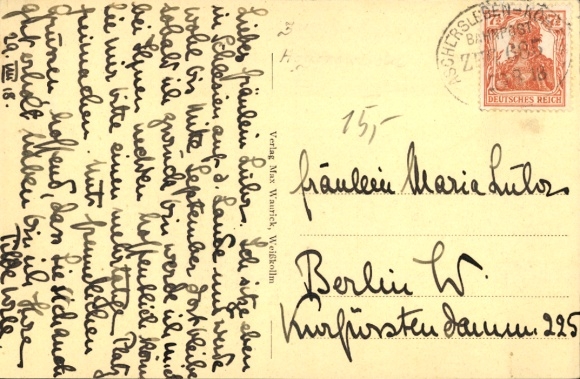 Liebes Fräulein Lühr. Ich sitze eben
in Schlesien auf d. Lande und werde
wohl bis Mitte September dort bleiben
sobald ich zurück bin werde ich mich
bei Ihnen melden hoffentlich können
Sie mir bitte einen
freimachen. Mit freundlichen
Grüssen hoffend, dass Sie sich auch
gut erholt haben bin ich Ihre
29. VIII 18.
Verlag Max Wanrick, Weißkollm
15,-
ASCHERSLEBEN
BAHNPOST
ZUG
18
DEUTSCHES REICH
Fräulein Maria Lühr
Berlin W.
Kurfürstendamm. 225